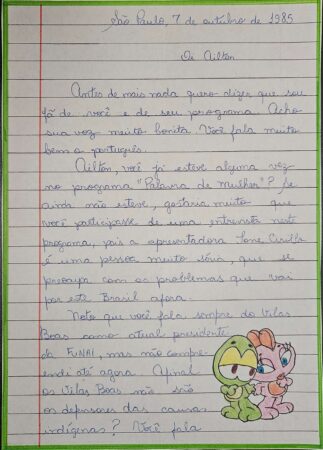 São Paulo, 7 de outubro de 1985
Oi Ailton
Antes de mais nada quero dizer que sou
fã de você e de seu programa. Acho
sua voz muito bonita. Você fala muito
bem o português.
Ailton, você já esteve alguma vez
no programa "Palavra de Mulher"? Se
ainda não esteve, gostaria muito que
você participasse de uma entrevista neste
programa, pois a apresentadora Ione Cirillo
é uma pessoa muito séria, que se
preocupa com os problemas que vai
por este Brasil afora.
Noto que você fala sempre do Vilas
Boas como atual presidente
da FUNAI, mas não compre-
endi até agora. Afinal
os Vilas Boas não são
os defensores das causas
indígenas? Você fala